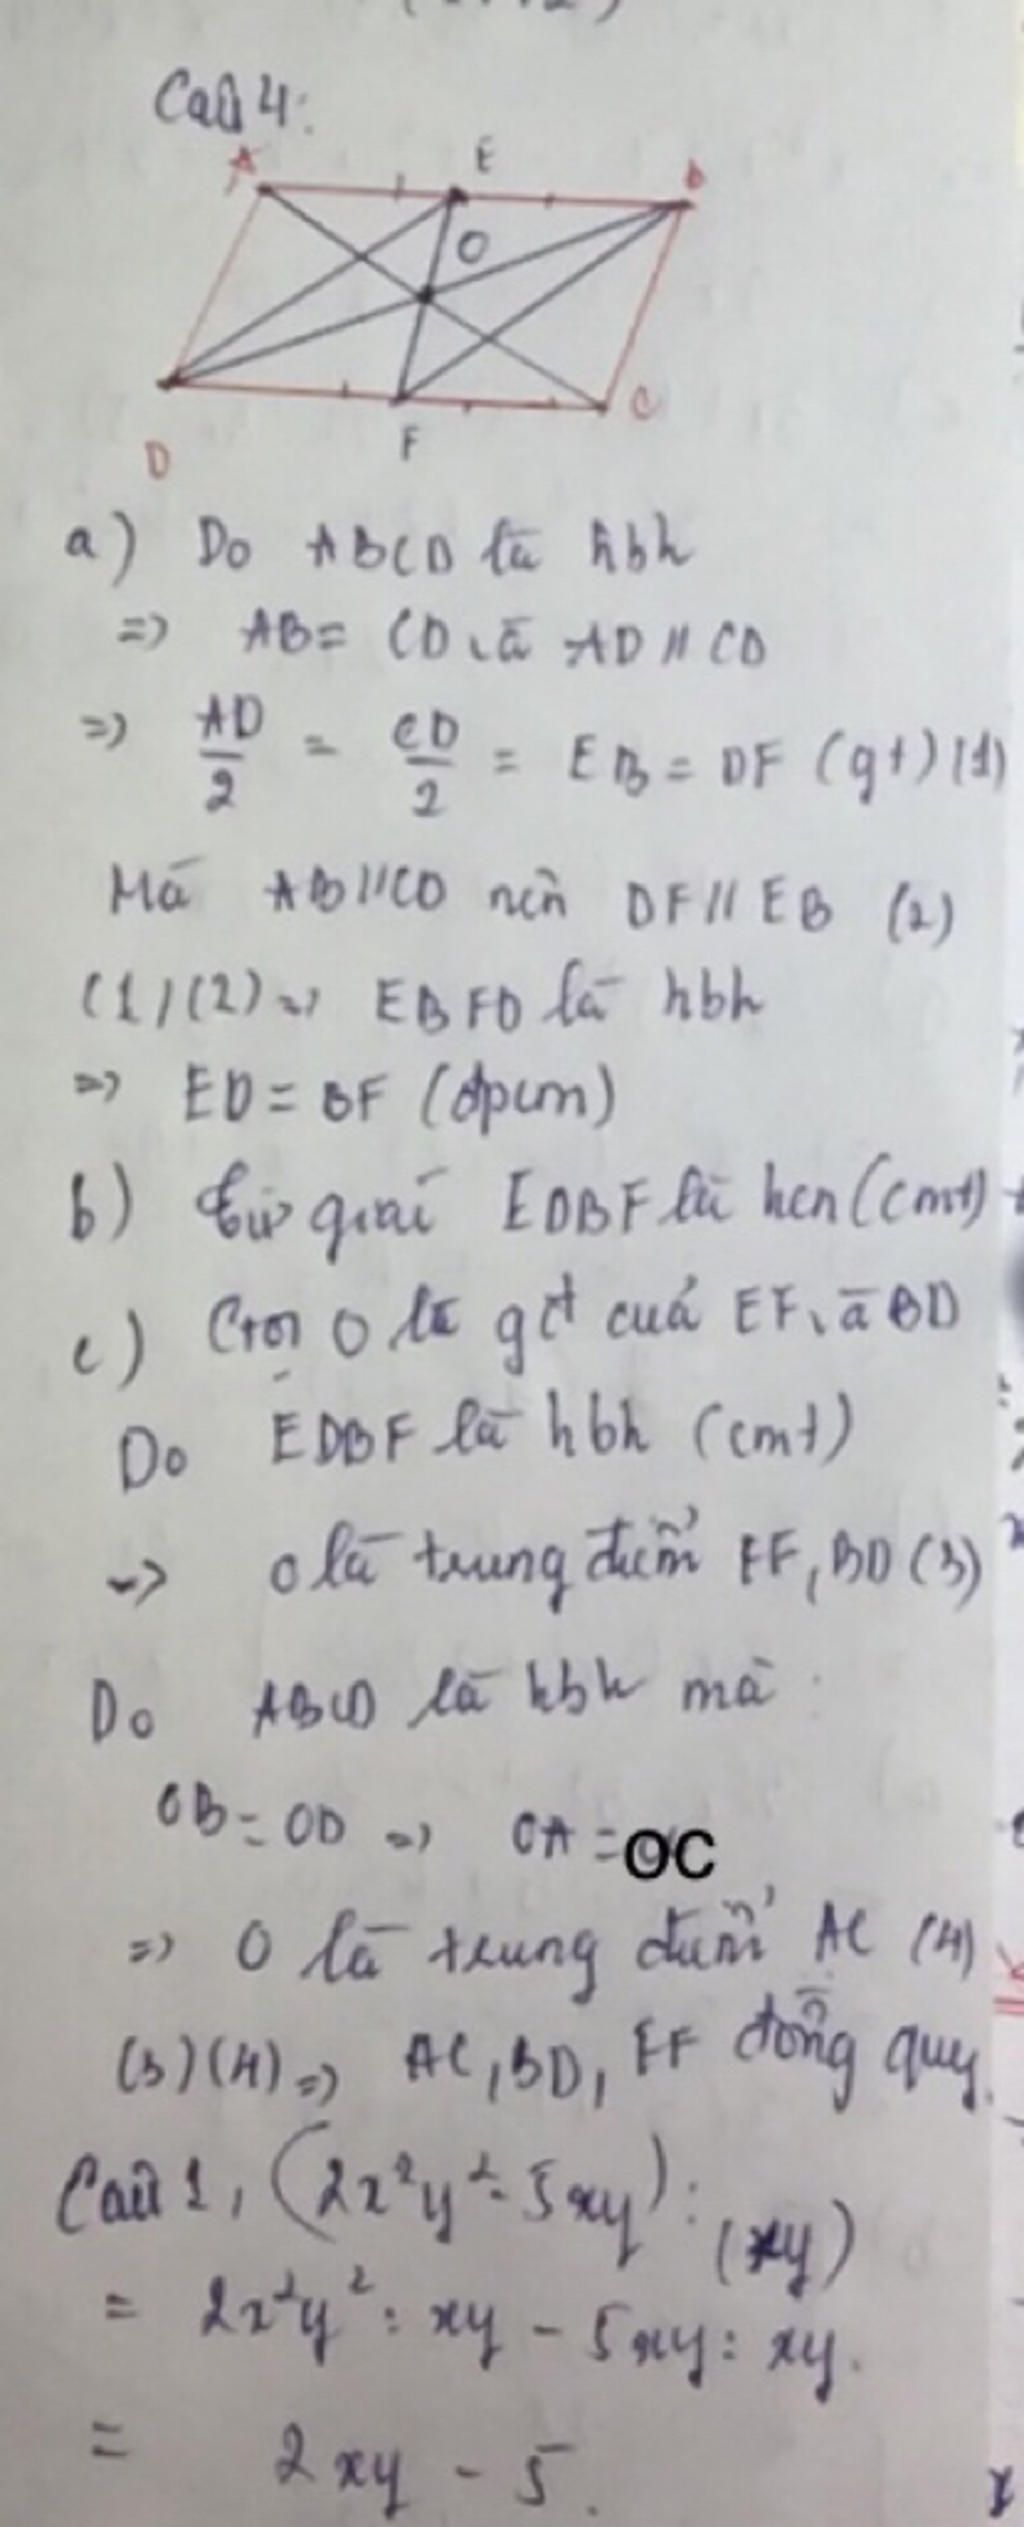 Câu 4:
A E B
O
D F C
a) Do ABCD là hbh
=> AB = CD và AD // CD
=> AD/2 = CD/2 = EB = DF (gt) (1)
Mà AB // CD nên DF // EB (2)
(1)(2) => EBFD là hbh
=> ED = BF (đpcm)
b) tứ giác EDBF là hcn (cmt)
c) Gọi O là gđ của EF và BD
Do EDBF là hbh (cmt)
=> O là trung điểm EF, BD (3)
Do ABCD là hbh mà
OB = OD => OA = OC
=> O là trung điểm AC (4)
(3)(4) => AC, BD, EF đồng quy.
Câu 1, (2x²y² - 5xy) : (xy)
= 2x²y² : xy - 5xy : xy.
= 2xy - 5.